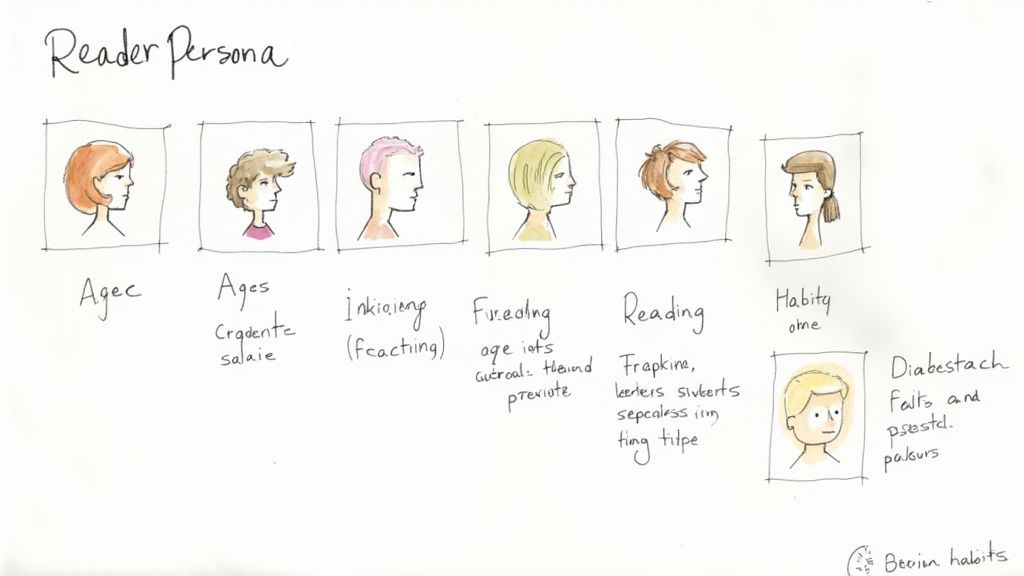 Reader Persona
Agec
Ages
Crgdente
salaie
Inkioiong
(Feactiing)
Fureading
age iots
preriote
Reading
Frapkine,
leeters siveerts
sepcaless iny
fing titpe
Habity
ohe
Diabestach
Faits and
psestd.
palours
Beciun habits